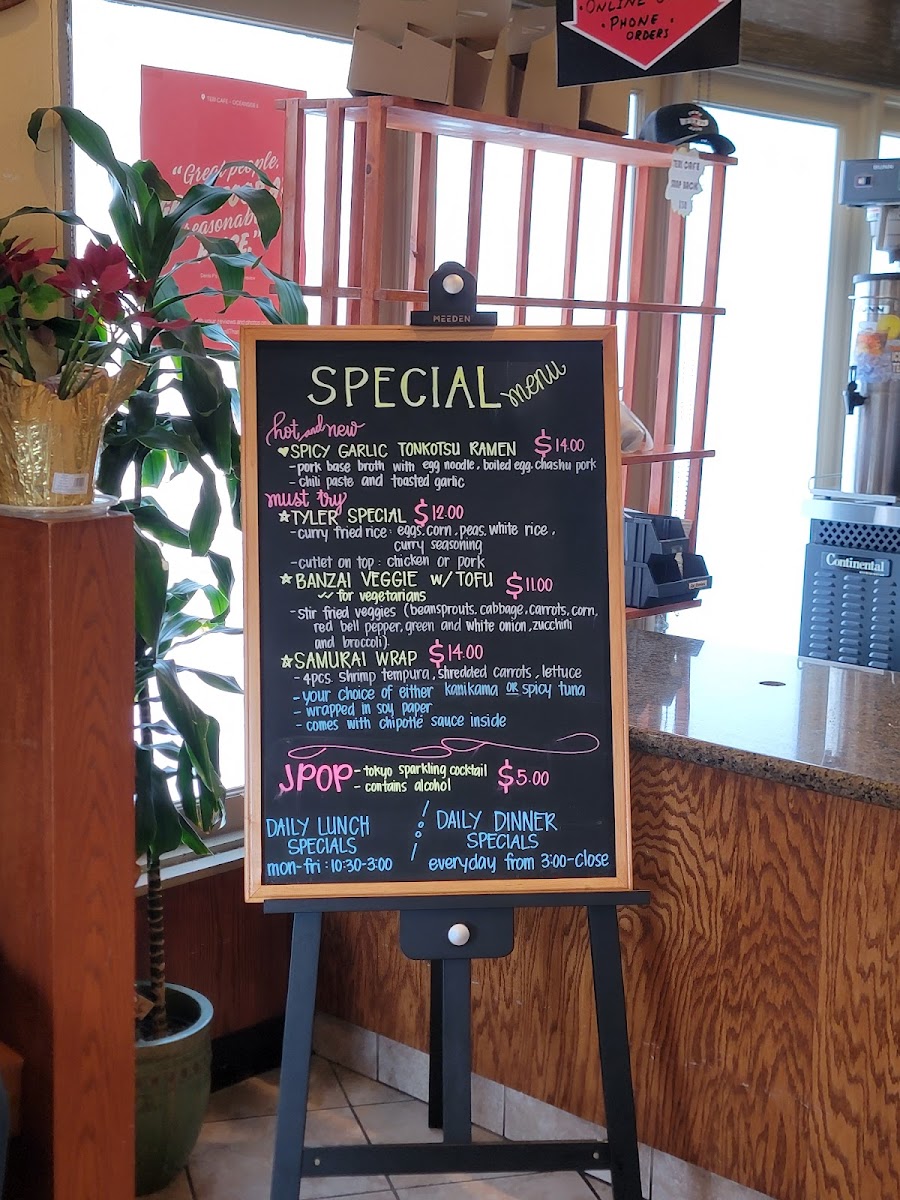 ONLINE
• PHONE
ORDERS
TERI CAFE - OCEANSIDE
"Great people,
reasonable
"
TERI CAFE
SNAP BACK
MEEDEN
SPECIAL menu
hot and new
♥SPICY GARLIC TONKOTSU RAMEN $14.00
-pork base broth with egg noodle, boiled egg, chashu pork
- chili paste and toasted garlic
must try
☆TYLER SPECIAL $12.00
-curry fried rice: eggs, corn, peas, white rice,
curry seasoning
-cutlet on top: chicken or pork
☆BANZAI VEGGIE w/TOFU $11.00
✓✓ for vegetarians
-stir fried veggies (beansprouts, cabbage, carrots, corn,
red bell pepper, green and white onion, zucchini
and broccoli).
☆SAMURAI WRAP $14.00
- 4pcs. shrimp tempura, shredded carrots, lettuce
- your choice of either kanikama or spicy tuna
- wrapped in soy paper
- comes with chipotle sauce inside
JPOP - tokyo sparkling cocktail $5.00
- contains alcohol
DAILY LUNCH
SPECIALS
mon-fri: 10:30-3:00
DAILY DINNER
SPECIALS
everyday from 3:00-close
Continental